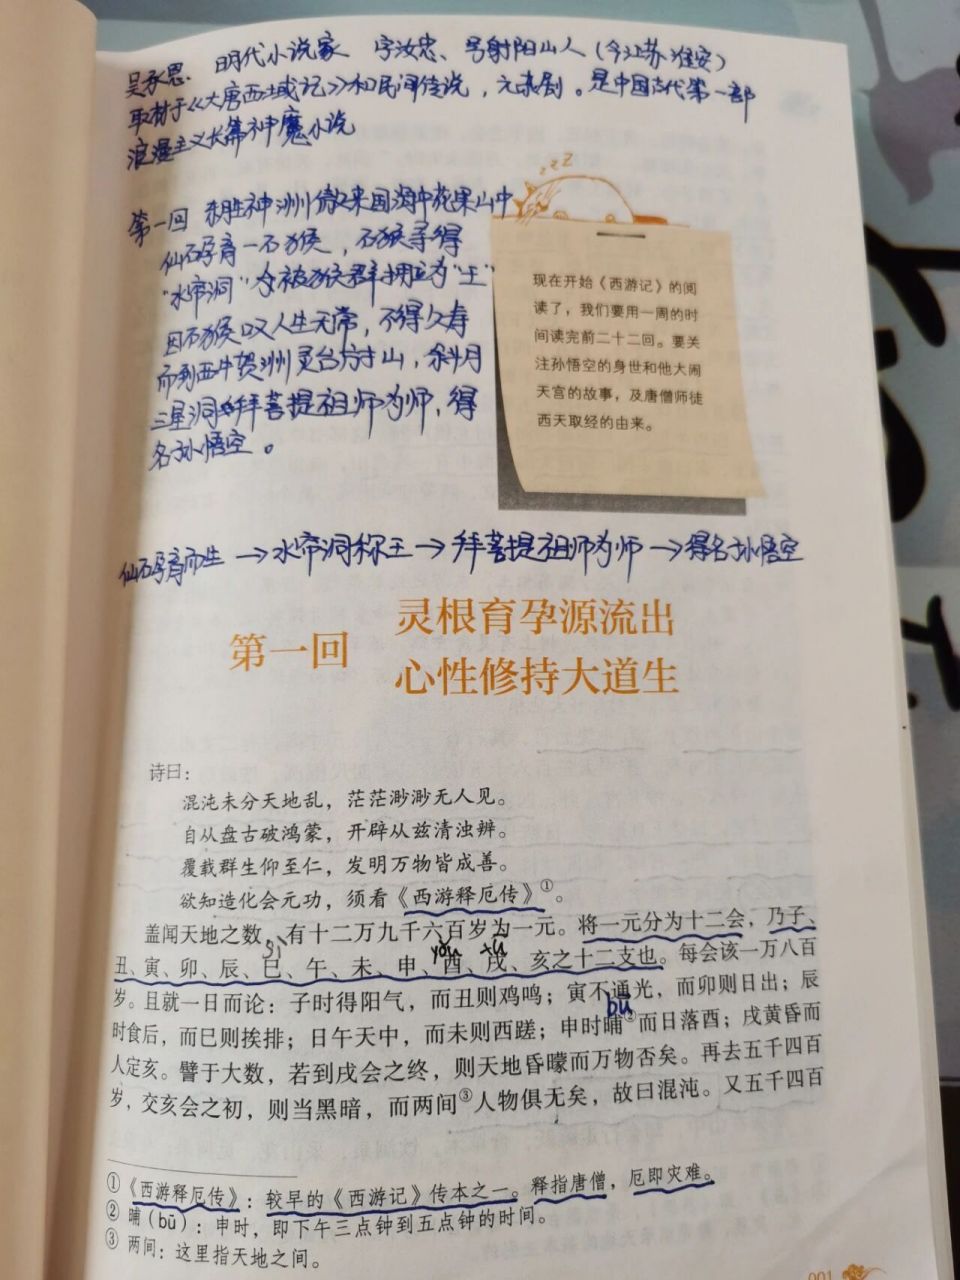 吴承恩、明代小说家 字汝忠、号射阳山人（今江苏淮安）
取材于《大唐西域记》和民间传说，元杂剧。是中国古代第一部
浪漫主义长篇神魔小说
zzZ
第一回 东胜神洲傲来国海中花果山中
仙石孕育一石猴，石猴寻得
“水帘洞”令被猴群拥立为“王”
因石猴叹人生无常，不得久寿
而到西牛贺洲灵台方寸山，斜月
三星洞拜菩提祖师为师，得
名孙悟空。
现在开始《西游记》的阅
读了，我们要用一周的时
间读完前二十二回。要关
注孙悟空的身世和他大闹
天宫的故事，及唐僧师徒
西天取经的由来。
仙石孕育而生→水帘洞称王→拜菩提祖师为师→得名孙悟空
第一回
灵根育孕源流出
心性修持大道生
诗曰：
混沌未分天地乱，茫茫渺渺无人见。
自从盘古破鸿蒙，开辟从兹清浊辨。
覆载群生仰至仁，发明万物皆成善。
欲知造化会元功，须看《西游释厄传》①。
盖闻天地之数，有十二万九千六百岁为一元。将一元分为十二会，乃子、
sì yǒu xū
丑、寅、卯、辰、巳、午、未、申、酉、戌、亥之十二支也。每会该一万八百
岁。且就一日而论：子时得阳气，而丑则鸡鸣；寅不通光，而卯则日出；辰
bū
时食后，而巳则挨排；日午天中，而未则西蹉；申时晡②而日落酉；戌黄昏而
人定亥。譬于大数，若到戌会之终，则天地昏曚而万物否矣。再去五千四百
岁，交亥会之初，则当黑暗，而两间③人物俱无矣，故曰混沌。又五千四百
①《西游释厄传》：较早的《西游记》传本之一。释指唐僧，厄即灾难。
② 晡（bū）：申时，即下午三点钟到五点钟的时间。
③ 两间：这里指天地之间。
001